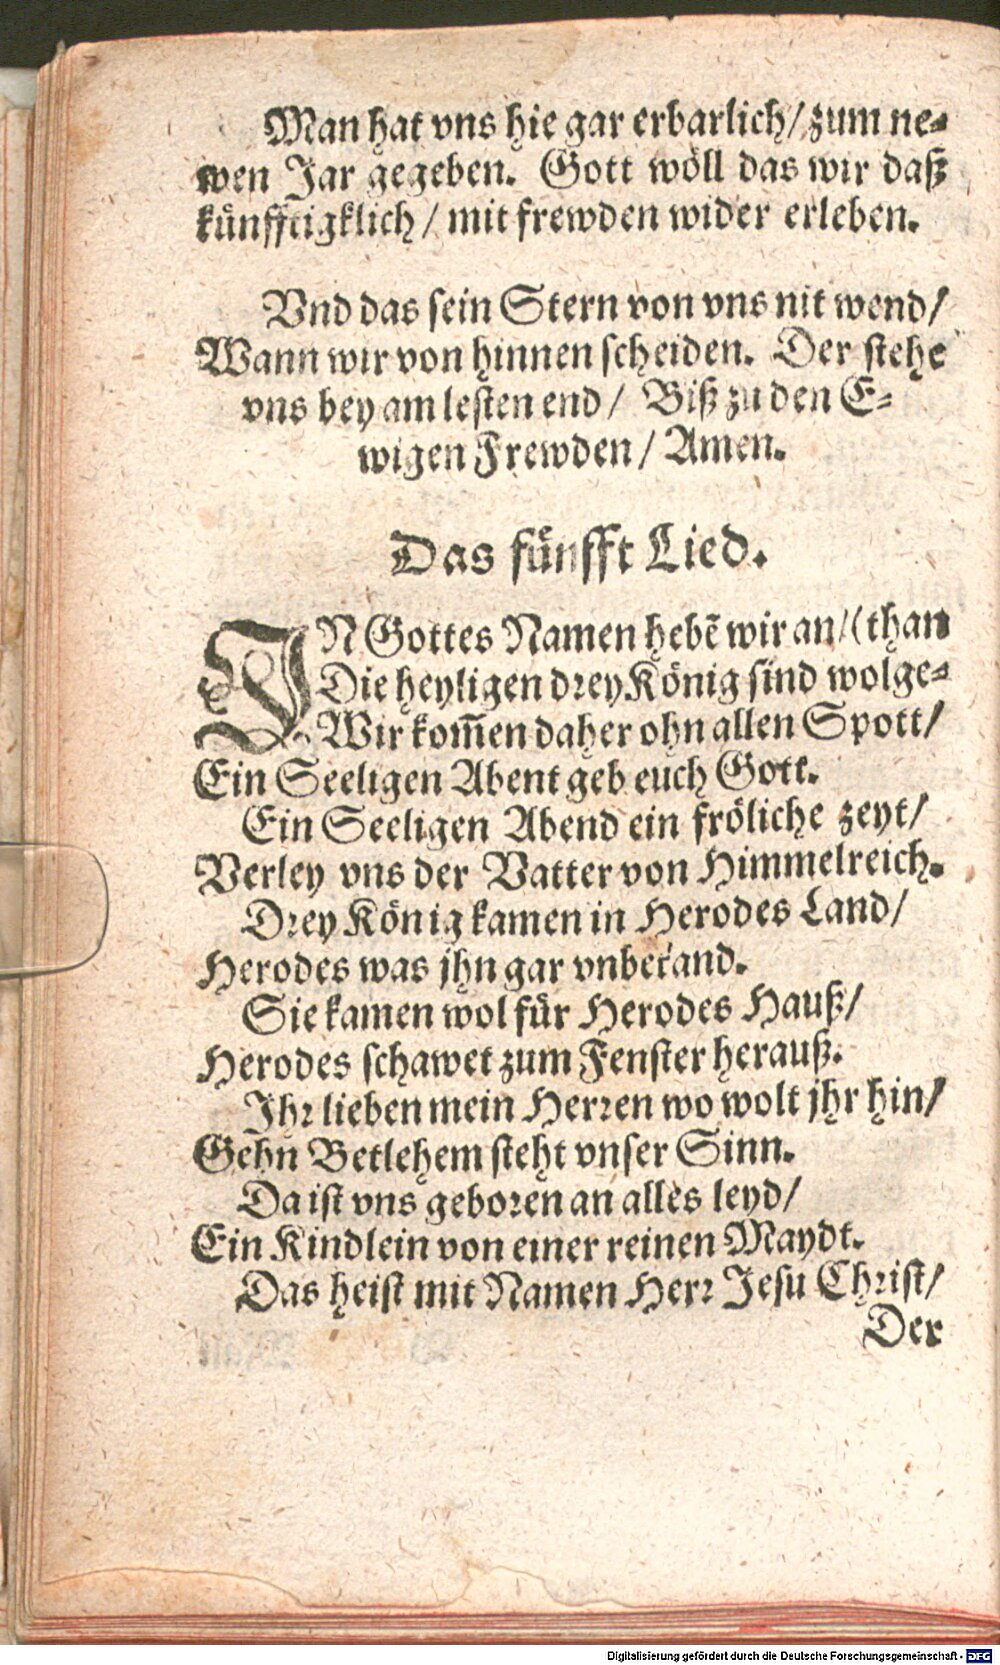 Man hat vns hie gar erbarlich/ zum ne⸗
wen Jar gegeben. Gott wöll das wir daß
künfftigklich/ mit frewden wider erleben.
Vnd das sein Stern von vns nit wend/
Wann wir von hinnen scheiden. Der stehe
vns bey am lesten end/ Biß zu den E⸗
wigen Frewden/ Amen.
Das fünfft Lied.
IN Gottes Namen hebẽ wir an/ (than
Die heyligen drey König sind wolge⸗
Wir kom̃en daher ohn allen Spott/
Ein Seeligen Abent geb euch Gott.
Ein Seeligen Abend ein fröliche zeyt/
Verley vns der Vatter von Himmelreich.
Drey König kamen in Herodes Land/
Herodes was jhn gar vnbekand.
Sie kamen wol für Herodes Hauß/
Herodes schawet zum Fenster herauß.
Ihr lieben mein Herren wo wolt jhr hin/
Gehn Betlehem steht vnser Sinn.
Da ist vns geboren an alles leyd/
Ein Kindlein von einer reinen Maydt.
Das heist mit Namen Herr Jesu Christ/
Der
Digitalisierung gefördert durch die Deutsche Forschungsgemeinschaft - DFG